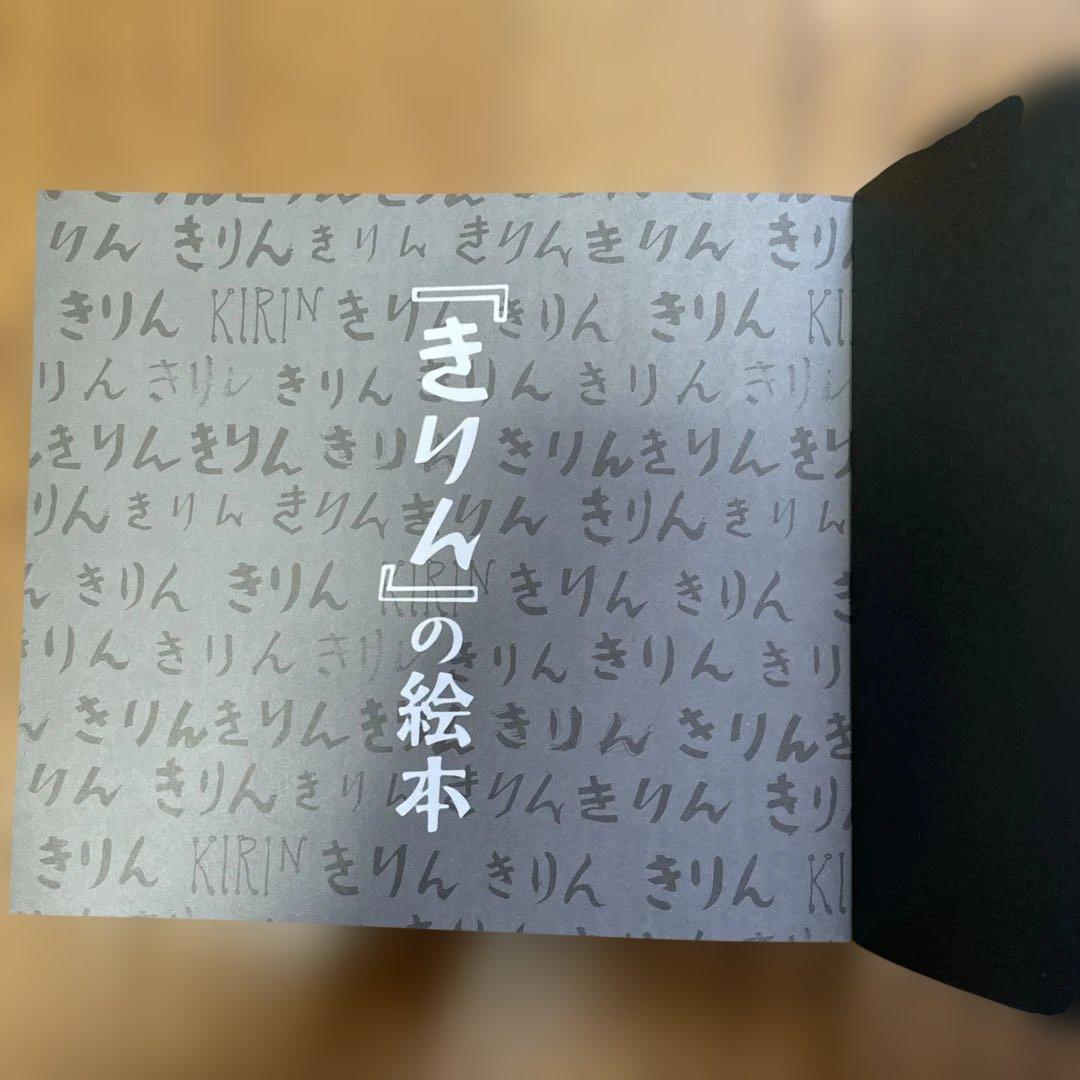 『きりん』の絵本
りん きりん きりん きりん きりん きり
きりん KIRIN きりん きりん きりん KI
りん きりん きりん きりん きりん きりん
きりん きりん きりん きりん きりん き
りん きりん きりん きりん きりん きりん
きりん きりん KIRIN きりん きりん
きりん きりん きりん きりん きりん きり
きりん きりん きりん きりん
りん きりん きりん きりん きりん きり
きりん KIRIN きりん きりん きりん KI